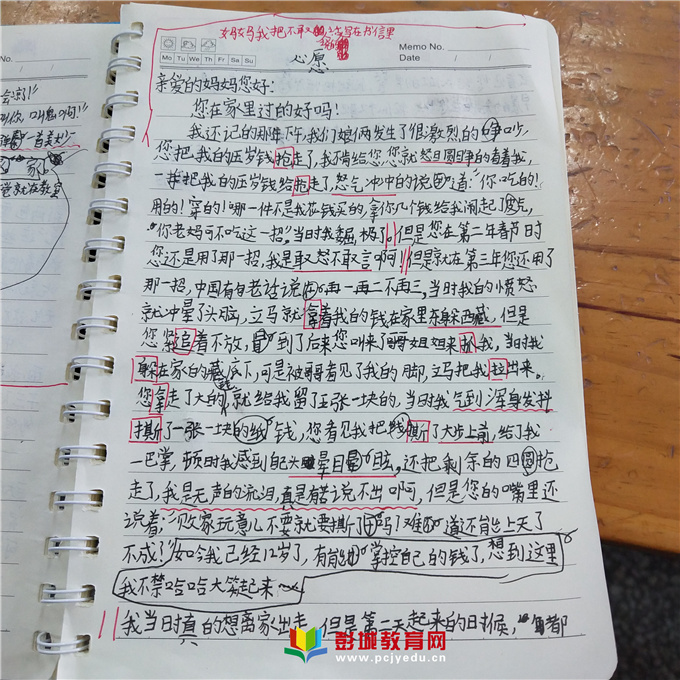 妈妈我把不敢说的话写在书信里
Memo No.
Mo Tu We Th Fr Sa Su
Date / /
心愿
亲爱的妈妈您好:
您在家里过的好吗!
我还记的那年下午,我们娘俩发生了很激烈的争吵,
您把我的压岁钱抢走了,我不肯给您,您就怒目圆睁的看着我,
一并把我的压岁钱给抢走了,怒气冲冲的说道:“你吃的!
用的!穿的!哪一件不是我花钱买的,拿你几个钱给我闹起了脾气,
“你老妈可不吃这一招”。当时我委屈极了。但是您在第二年春节时
您还是用了那一招,我是敢怒不敢言啊!但是就在第三年您还用了
那一招,中国有句老话说的,再一再二不再三,当时我的愤怒
就冲昏了头脑,立马就拿着我的钱在家里东躲西藏,但是
您紧追着不放,到了后来您叫来了姐姐来抓我,当时我
躲在家的底下,可是被看见了我的脚,立马把我拉出来。
您拿走了大的,就给我留了五张一块的,当时我气到浑身发抖
撕了一张一块的纸钱,您看见我把撕了大步上前,给了我
一巴掌,顿时我感到自己头晕目眩。还把剩余的四圆抢
走了,我是无声的流泪,真是有苦说不出啊,但是您的嘴里还
说着:“败家玩意儿不要就要撕了吗!难道不能上天了
不成!如今我已经12岁了,有能力掌控自己的钱了,想到这里
我不禁哈哈大笑起来
我当时真的想离家出走,但是第二天起来的时候,都
彭城教育网
www.pcjyedu.cn